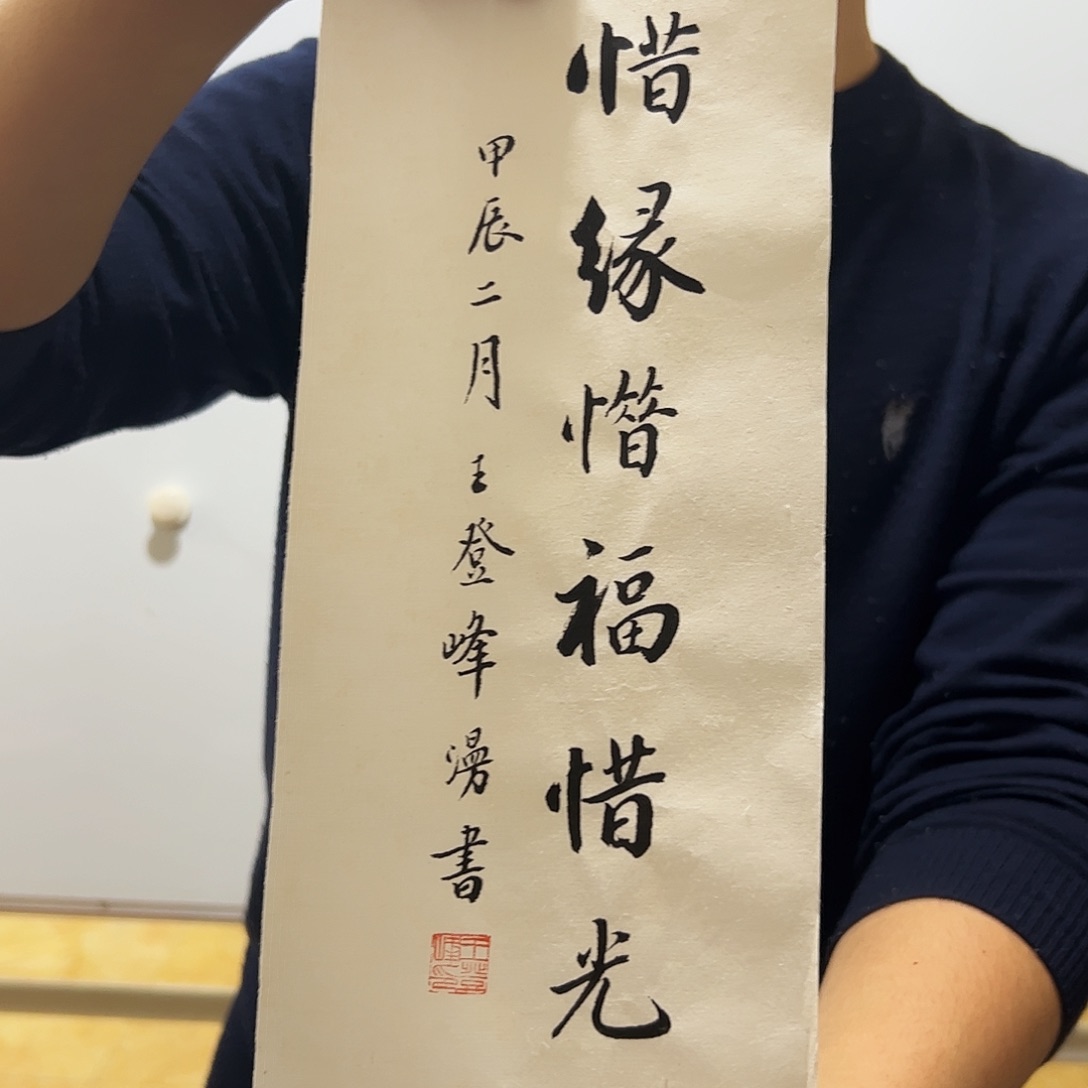 惜緣惜福惜光
甲辰二月 王登峰漫書